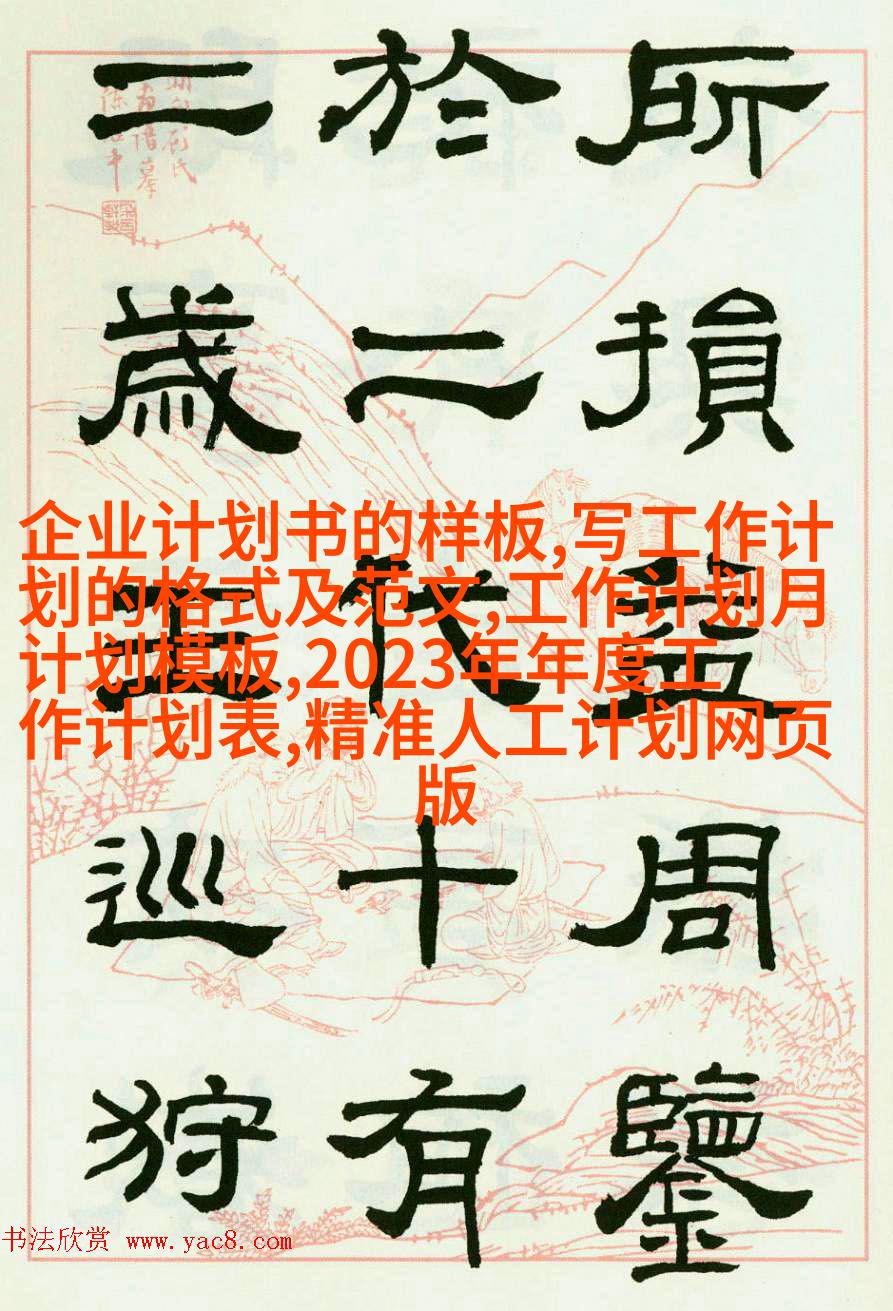 所損益周鑒
於二代十有
二歲王巡狩
企业计划书的样板,写工作计
划的格式及范文,工作计划月
计划模板,2023年年度工
作计划表,精准人工计划网页
版
书法欣赏 www.yac8.com